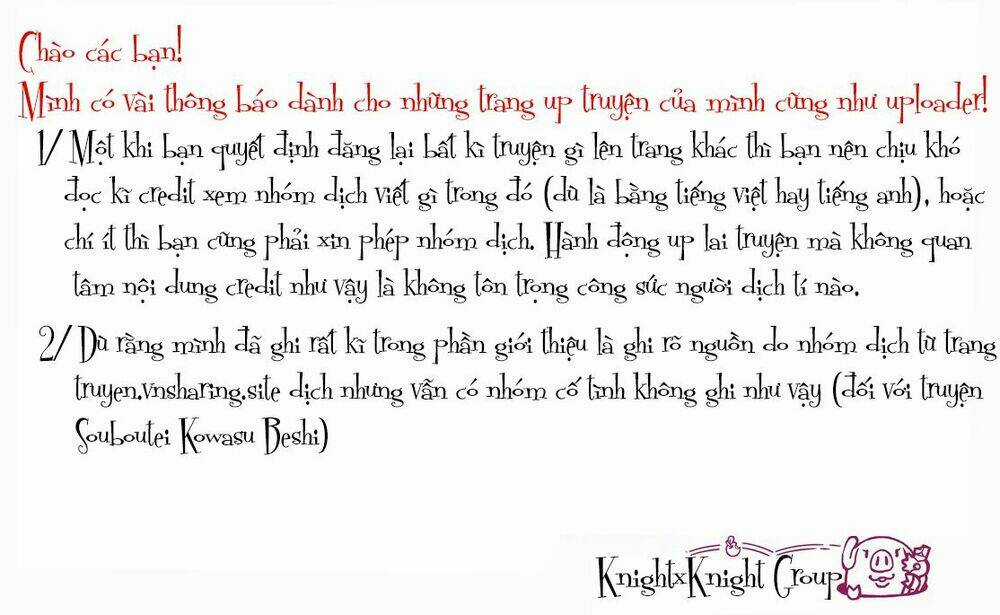 Chào các bạn!
Mình có vài thông báo dành cho những trang up truyện của mình cũng như uploader!
1/ Một khi bạn quyết định đăng lại bất kì truyện gì lên trang khác thì bạn nên chịu khó
đọc kĩ credit xem nhóm dịch viết gì trong đó (dù là bằng tiếng việt hay tiếng anh), hoặc
chí ít thì bạn cũng phải xin phép nhóm dịch. Hành động up lại truyện mà không quan
tâm nội dung credit như vậy là không tôn trọng công sức người dịch tí nào.
2/ Dù rằng mình đã ghi rất kĩ trong phần giới thiệu là ghi rõ nguồn do nhóm dịch từ trang
truyen.vnsharing.site dịch nhưng vẫn có nhóm cố tình không ghi như vậy (đối với truyện
Souboutei Kowasu Beshi)
KnightxKnight Group